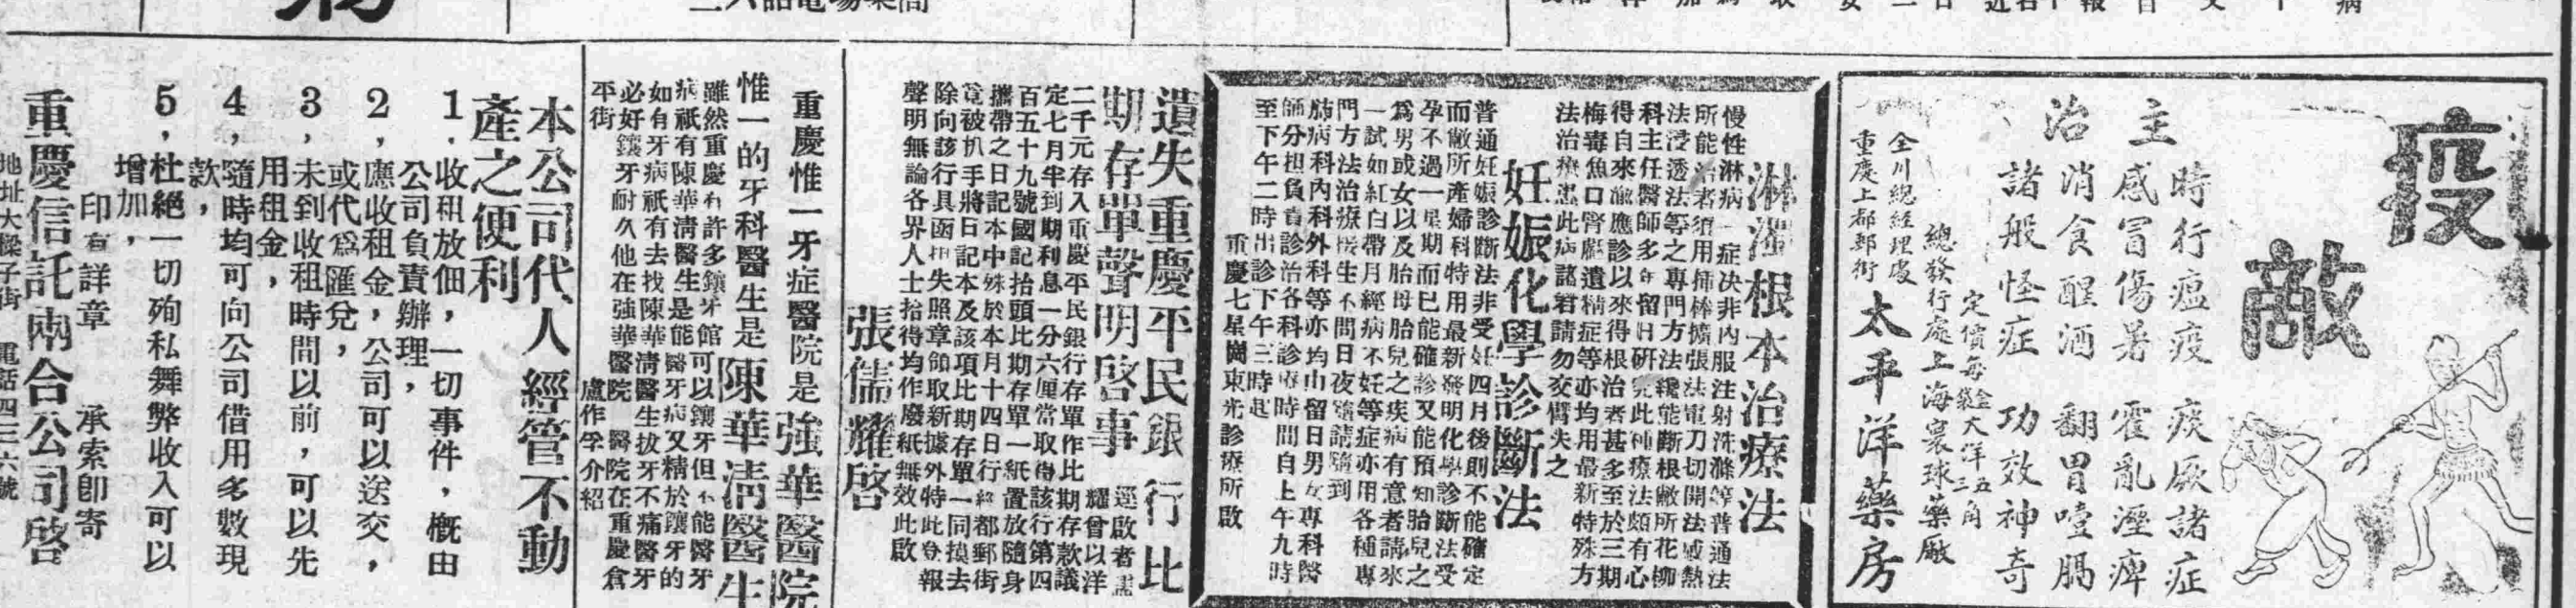 疫敵
主治
時行瘟疫 痰厥諸症
感冒傷暑 霍亂溼痺
消食醒酒 翻胃噎膈
諸般怪症 功效神奇
定價每袋大洋五角
總發行處上海寰球藥廠
全川總經理處
重慶上都郵街
太平洋藥房
淋濁根本治療法
慢性淋病一症决非內服注射洗滌等普通法
所能治者須用揷棒擴張法電刀切開法或熱
法浸透法等之專門方法纔能斷根敝所花柳
科主任醫師多年留日研究此種療法頗有心
得自來渝應診以來得根治者甚多至於三期
梅毒魚口腎虧遺精症等亦均用最新特殊方
法治療患此病諸君請勿交臂失之
妊娠化學診斷法
普通妊娠診斷法非受妊四月後則不能確定
而敝所產婦科特用最新發明化學診斷法受
孕不過一星期而已能確診又能預知胎兒之
爲男或女以及胎母胎兒之疾病有意者請來
一試如紅白帶月經病不妊等症亦用各種專
門方法治療接生不問日夜隨請隨到
肺病科內科外科等亦均由留日男女專科醫
師分担負責診治各科診療時間自上午九時
至下午二時出診下午三時起
重慶七星崗東光診療所啟
遺失重慶平民銀行比
期存單聲明啓事
逕啟者
耀曾以洋
二千元存入重慶平民銀行存單作比期存款議
定七月半到期利息一分六厘當取得該行第四
百五十九號國記抬頭比期存單一紙置放隨身
攜帶之日記本中殊於本月十四日行經都郵街
竟被扒手將日記本及該項比期存單一同摸去
除向該行具函掛失照章領取新據外特此登報
聲明無論各界人士拾得均作廢紙無效此啟
張儒耀啓
重慶惟一牙症醫院是強華醫院
惟一的牙科醫生是陳華清醫生
雖然重慶有許多鑲牙館可以鑲牙但不能醫牙
病祇有陳華清醫生是能醫牙病又精於鑲牙的
如有牙病祇有去找陳華清醫生拔牙不痛醫牙
必好鑲牙耐久他在強華醫院 醫院在重慶倉
平街
盧作孚介紹
本公司代人經管不動
產之便利
1，收租放佃，一切事件，概由
公司負責辦理，
2，應收租金，公司可以送交，
或代爲匯兌，
3，未到收租時間以前，可以先
用租金，
4，隨時均可向公司借用多數現
款，
5，杜絕一切殉私舞弊收入可以
增加，
印有詳章 承索卽寄
重慶信託兩合公司啓
地址大樑子街 電話四三六號